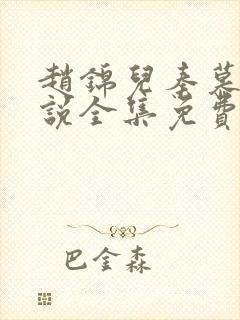 趙錦兒秦慕
說全集免費
巴金森